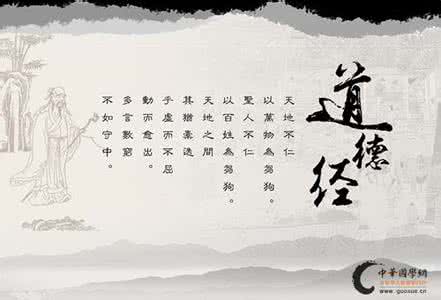 道德经
天地不仁
以萬物為芻狗。
聖人不仁
以百姓為芻狗。
天地之間
其猶橐迭
乎虛而不屈
動而愈出。
多言數窮
不如守中。
中華國學網
www.guoxue.cn